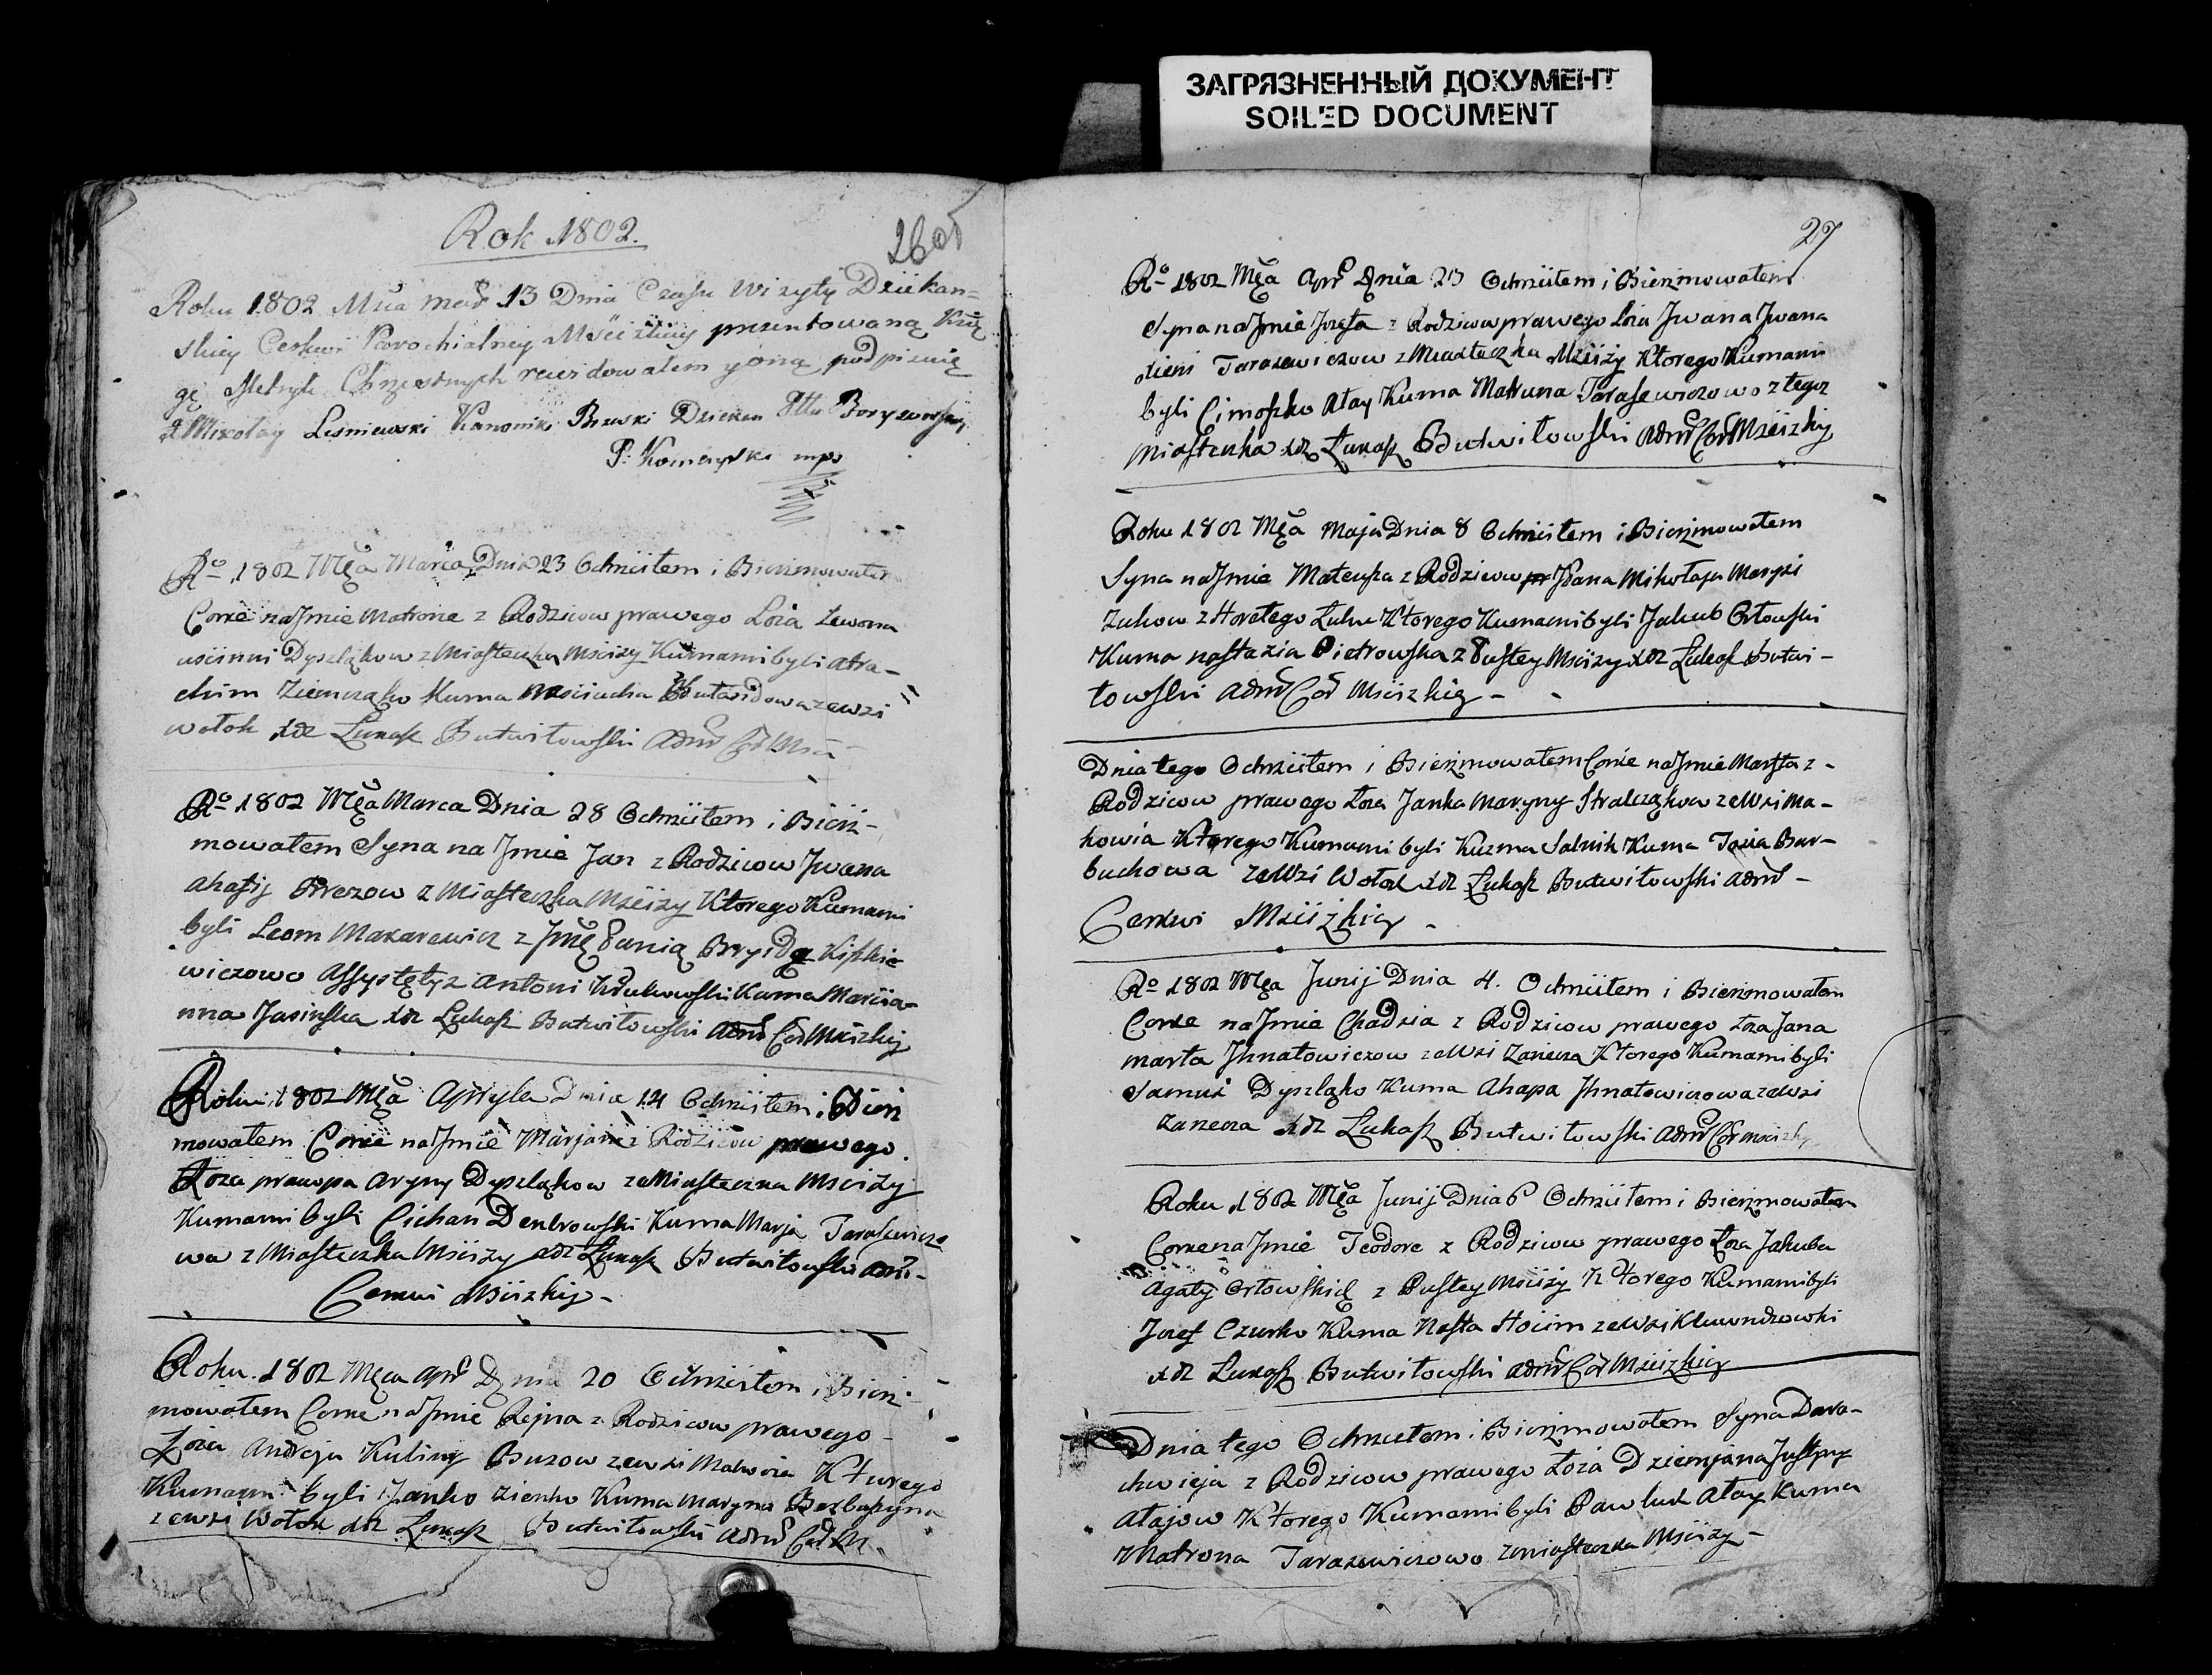 ЗАГРЯЗНЕННЫЙ ДОКУМЕНТ
SOILED DOCUMENT
Rok 1802.
26об
Roku 1802 Mca 13 Dnia Czasu Wizyty Dziekan=
skiey Cerkwi Parochialney Mściżkiey prezentowaną
gę Metryk Chrzestnych rewidowałem podpisuię
X Mikołay Lesniewski Kanonik Brzeski Dziekan
mp
Ro 1802 Męa Marca Dnia 23 Ochrzciłem i Bierzmowałem
Corke na Jmie Matrone z Rodzicow prawego Loża Lewona
Dyszląkow z Miasteczka Mscizy Kumami byli Atra-
chim Kuma
wołok xdz Łukasz Butwiłowski Admr Cer
Ro 1802 Męa Marca Dnia 28 Ochrzciłem i Bierz-
mowałem Syna na Jmie Jan z Rodzicow Jwana
Ahafij z Miasteczka Mscizy Ktorego Kumami
byli Leom Makarewicz z Panią Brygidą Kiszkie
wiczowo Assystęty 2 Antoni Kuma Marcia-
nna Jasinska xdz Łukasz Butwiłowski Admr Cer Mscizkiy
Roku 1802 Męa Apryla Dnia 14 Ochrzciłem i Bierz
mowałem Corke na Jmie Marjana z Rodzicow prawego
Łoza Aryny Dyszląkow ze Miasteczka Mscizy
Kumami byli Cichan Dembrowski Kuma Marja Tarasewiczo
wa z Miasteczka Mscizy xdz Łukasz Butwiłowski Admr-
Cerkwi Mscizkiy-
Roku 1802 Męca Apr Dnia 20 Ochrzciłem i Bierz-
mowałem Corke na Jmie Rejna z Rodzicow prawego-
Łoża Andreja Kuliny Buzow zewsi Ktorego
Kumami byli Janko Zienko Kuma Maryna
zewsi Wołok xdz Łukasz Butwiłowski Admr Cer M.
27
Ro 1802 Męa Apr Dnia 23 Ochrzciłem i Bierzmowałem
Syna na Jmie Jozefa z Rodzicow prawego Loża Jwana
Tarasewiczow z Miasteczka Mscizy Ktorego Kumami
byli Cimoszko Atay Kuma Matruna Tarasewiczowo z tegoz
miasteczka xdz Łukasz Butwiłowski Admr Cer Mscizkiy
Roku 1802 Męa Maja Dnia 8 Ochrzciłem i Bierzmowałem
Syna na Jmie Mateusza z Rodzicow Mikołaja Maryni
Zukow z Horełego Ługu Ktorego Kumami byli Jakub Orłowski
Kuma nastazia Pietrowska z Pustey Mscizy xdz Łukasz Butwi-
łowski Admr Cer Mscizkiey-
Dnia tego Ochrzciłem i Bierzmowałem Corke na Jmie Marfta z-
Rodzicow prawego Łoza Janka Maryny Stralcząkow ze Wsi Ma-
kowia Ktorego Kumami byli Kuzma Salnik Kuma Bar-
buchowa ze Wsi Wołok xdz Łukasz Butwiłowski Admr-
Cerkwi Mscizkiey-
Ro 1802 Męa Junij Dnia 4. Ochrzciłem i Bierzmowałem
Corke na Jmie Chadzia z Rodzicow prawego Łoza Jana
Marta Jhnatowiczow ze Wsi Zarzecza Ktorego Kumami byli
Samuś Dyszląko Kuma Ahapa Jhnatowiczowa ze Wsi
Zarzecza xdz Łukasz Butwiłowski Admr Cer
Roku 1802 Męa Junij Dnia 6 Ochrzciłem i Bierzmowałem
Corke na Jmie Teodore z Rodzicow prawego Łoza Jakuba
Agaty Orłowskich z Pustey Mscizy Ktorego Kumami byli
Jozef Czurko Kuma Nasta ze Wsi
xdz Łukasz Butwiłowski Admr Cer Mscizkiey
Dnia tego Ochrzciłem i Bierzmowałem Syna Dara-
chwieja z Rodzicow prawego Łoża Dziemjana Justyny
Atajow Ktorego Kumami byli Pawluk Atay Kuma
Matrona Tarazewiczowo z miasteczka Mscizy-